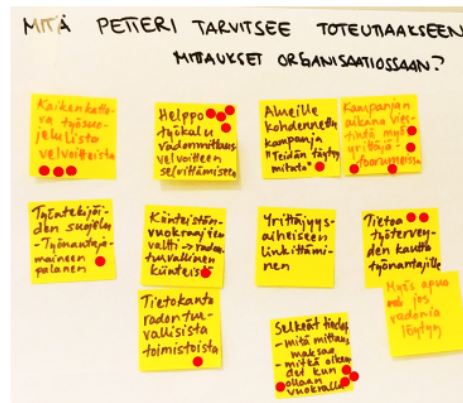 MITÄ PETTERI TARVITSEE TOTEUTTAAKSEEN
MITTAUKSET ORGANISAATIOSSAAN?
Kaikenkatta-
va työsuo-
jelulista
velvoitteista
Helppo
työkalu
radonmittaus
velvoitteen
selvittämiseen
Alueille
kohdennettu
kampanja
"Teidän täytyy
mitata"
Kampanjan
aikana vies-
tintä myös
yrittäjä-
foorumeissa
Työntekijöiden
den suojelu
- Työnantaja-
maineen
palanen
Kiinteistön-
vuokraajien
valtti → radon-
turvallinen
kiinteistö
Yrittäjyys-
aiheiseen
linkittämi-
nen
Tietoa
työtervey-
den kautta
työnantajille
Tietokanta
radontur-
vallisista
toimistoista
Selkeät tiedot
- mitä mittaus
maksaa
- mitkä oikeu-
det kun
ollaan
vuokralla
Myös apua
jos
radonia
löytyy